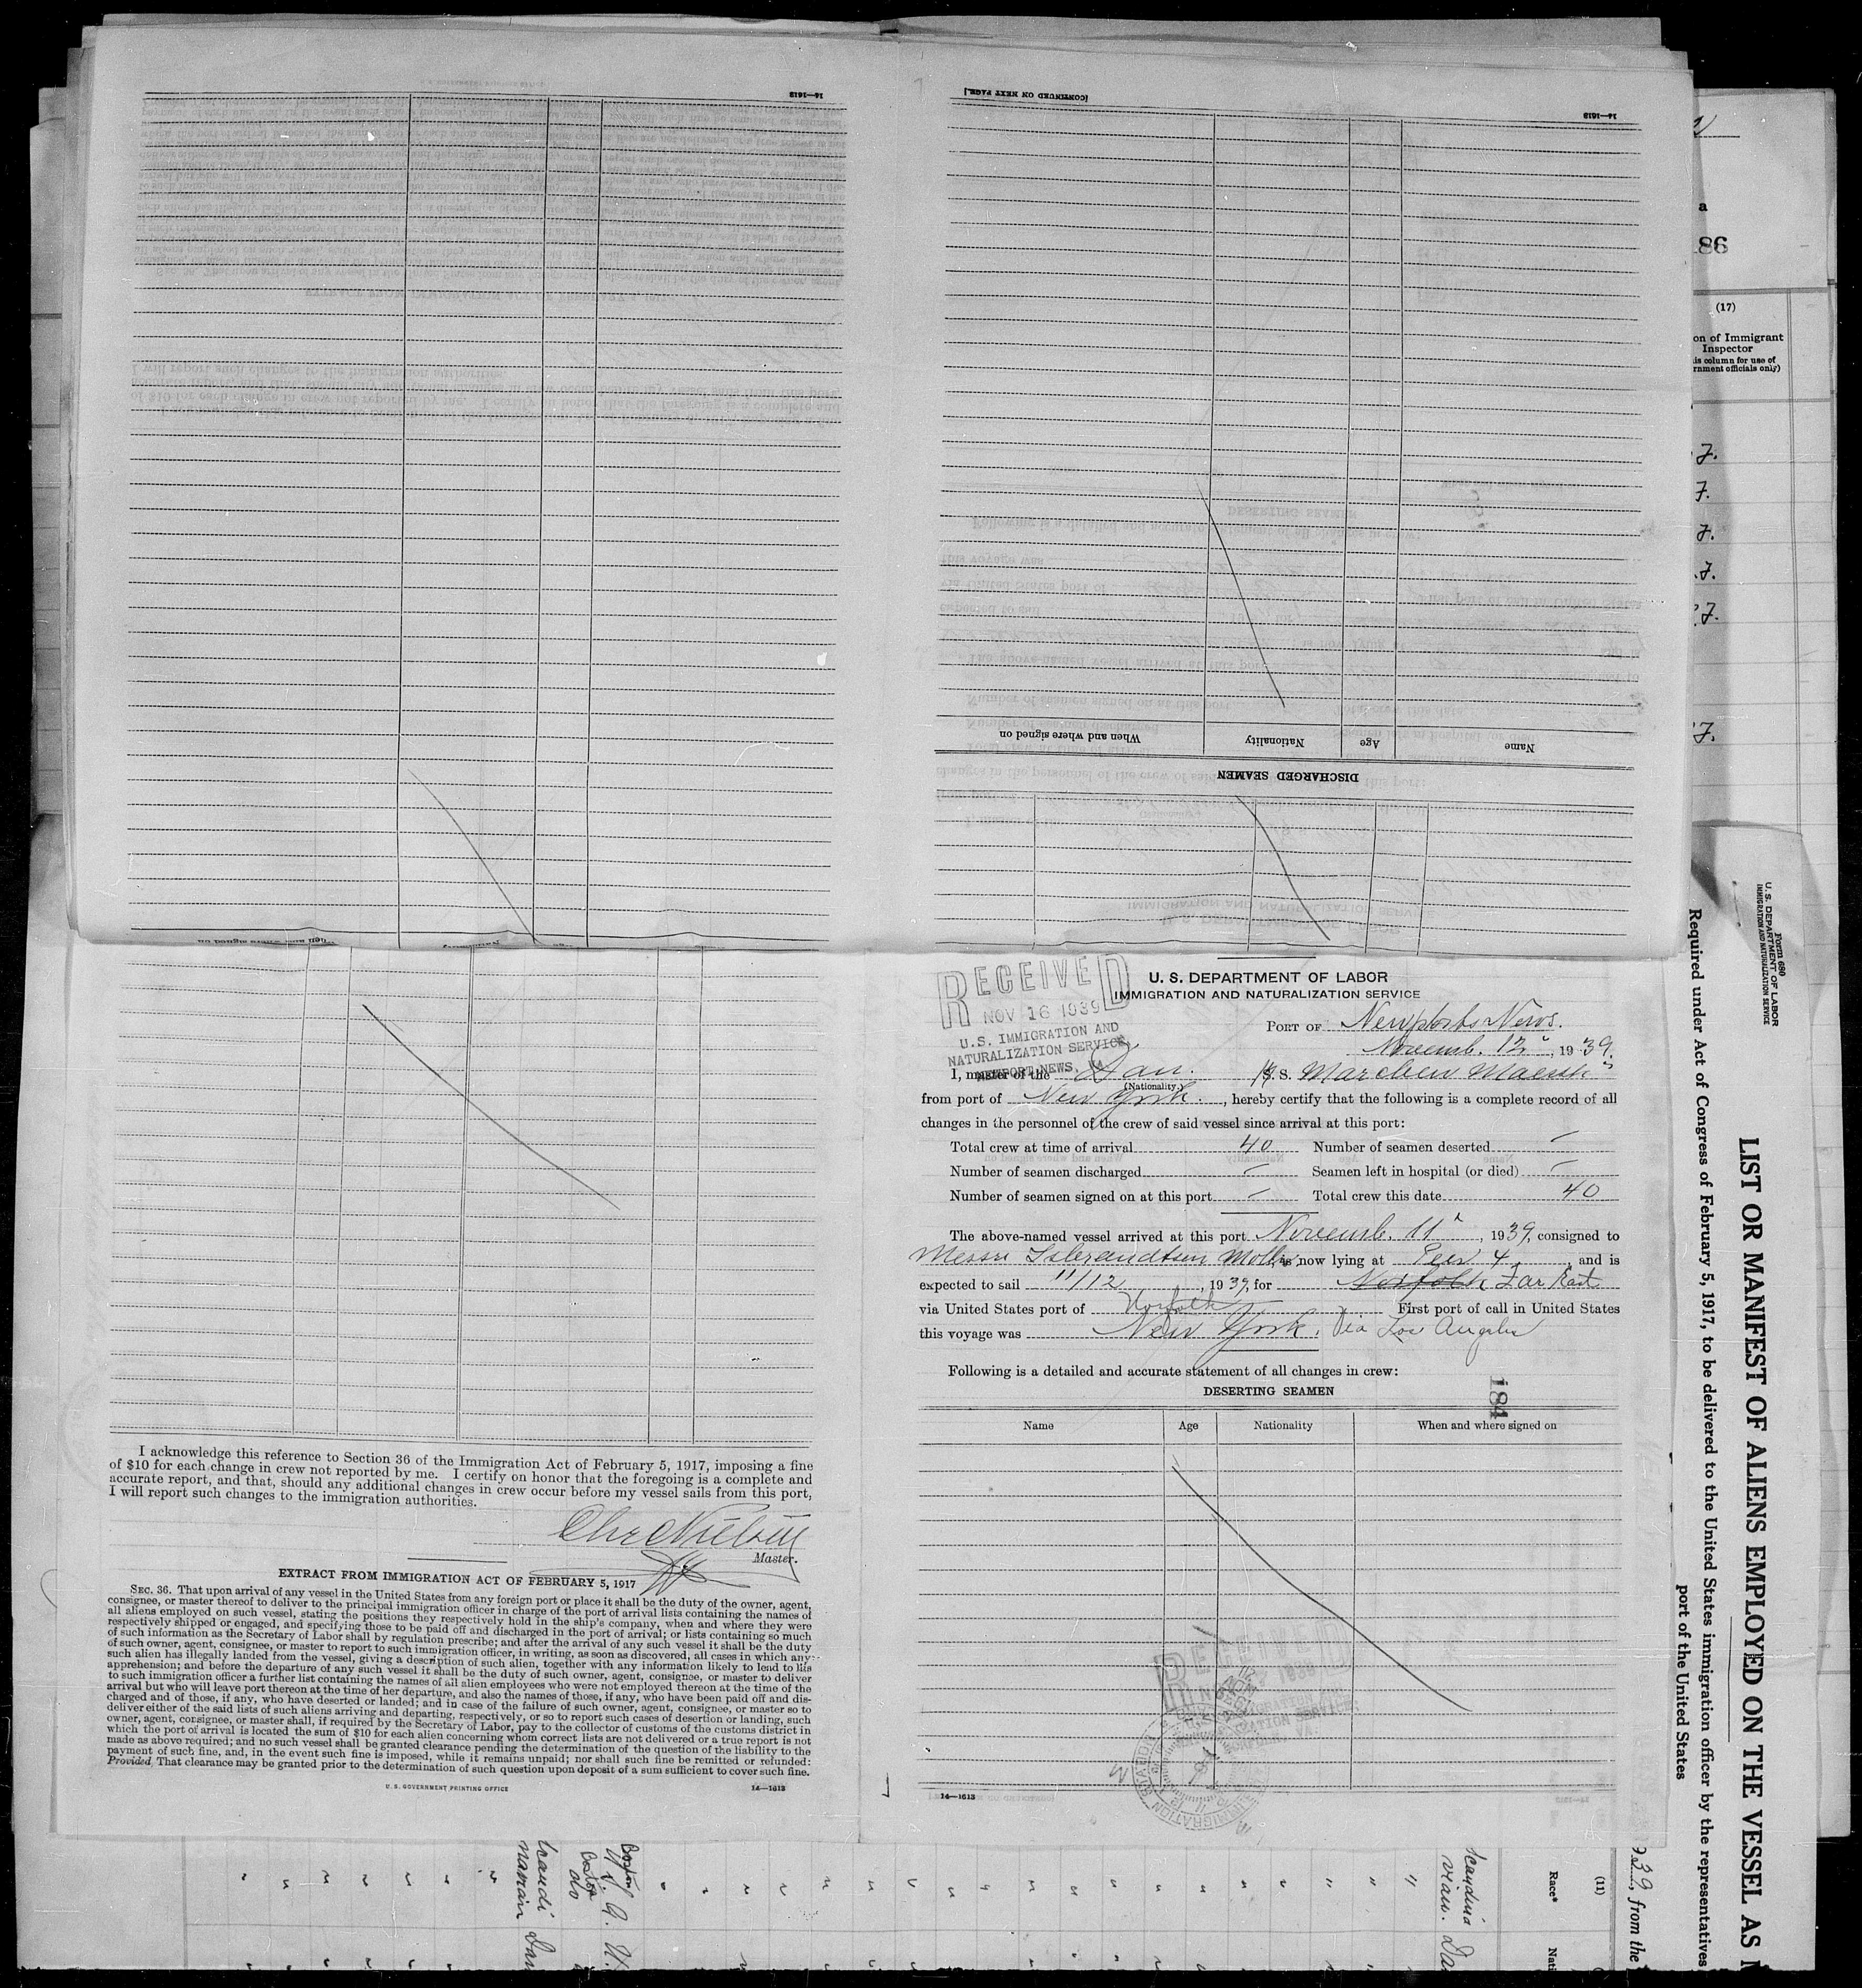 14—1613
[CONTINUED ON NEXT PAGE.]
14—1613
When and where signed on
Nationality
Age
Name
DISCHARGED SEAMEN
RECEIVED
NOV 16 1939
U.S. IMMIGRATION AND
NATURALIZATION SERVICE
NEWPORT NEWS, VA.
U. S. DEPARTMENT OF LABOR
IMMIGRATION AND NATURALIZATION SERVICE
PORT OF Newports News.
Novemb. 12", 1939.
I, master of the Dan. S. S. Marchen Maersk
(Nationality.)
from port of New York., hereby certify that the following is a complete record of all
changes in the personnel of the crew of said vessel since arrival at this port:
Total crew at time of arrival 40 Number of seamen deserted —
Number of seamen discharged — Seamen left in hospital (or died) —
Number of seamen signed on at this port — Total crew this date 40
The above-named vessel arrived at this port Novemb. 11", 1939, consigned to
Messrs Isbrandtsen Moller, is now lying at Pier 4, and is
expected to sail 11/12, 1939, for Norfolk Far East
via United States port of Norfolk First port of call in United States
this voyage was New York. Via Los Angeles
Following is a detailed and accurate statement of all changes in crew:
DESERTING SEAMEN
184
Name Age Nationality When and where signed on
14—1613
I acknowledge this reference to Section 36 of the Immigration Act of February 5, 1917, imposing a fine
of $10 for each change in crew not reported by me. I certify on honor that the foregoing is a complete and
accurate report, and that, should any additional changes in crew occur before my vessel sails from this port,
I will report such changes to the immigration authorities.
Chr Nielsen
Master.
EXTRACT FROM IMMIGRATION ACT OF FEBRUARY 5, 1917
SEC. 36. That upon arrival of any vessel in the United States from any foreign port or place it shall be the duty of the owner, agent,
consignee, or master thereof to deliver to the principal immigration officer in charge of the port of arrival lists containing the names of
all aliens employed on such vessel, stating the positions they respectively hold in the ship's company, when and where they were
respectively shipped or engaged, and specifying those to be paid off and discharged in the port of arrival; or lists containing so much
of such information as the Secretary of Labor shall by regulation prescribe; and after the arrival of any such vessel it shall be the duty
of such owner, agent, consignee, or master to report to such immigration officer, in writing, as soon as discovered, all cases in which any
such alien has illegally landed from the vessel, giving a description of such alien, together with any information likely to lead to his
apprehension; and before the departure of any such vessel it shall be the duty of such owner, agent, consignee, or master to deliver
to such immigration officer a further list containing the names of all alien employees who were not employed thereon at the time of the
arrival but who will leave port thereon at the time of her departure, and also the names of those, if any, who have been paid off and dis-
charged and of those, if any, who have deserted or landed; and in case of the failure of such owner, agent, consignee, or master so to
deliver either of the said lists of such aliens arriving and departing, respectively, or so to report such cases of desertion or landing, such
owner, agent, consignee, or master shall, if required by the Secretary of Labor, pay to the collector of customs of the customs district in
which the port of arrival is located the sum of $10 for each alien concerning whom correct lists are not delivered or a true report is not
made as above required; and no such vessel shall be granted clearance pending the determination of the question of the liability to the
payment of such fine, and, in the event such fine is imposed, while it remains unpaid; nor shall such fine be remitted or refunded:
Provided, That clearance may be granted prior to the determination of such question upon deposit of a sum sufficient to cover such fine.
U. S. GOVERNMENT PRINTING OFFICE 14—1613
a
186
(17)
on of Immigrant
Inspector
is column for use of
rnment officials only)
Form 680
U. S. DEPARTMENT OF LABOR
IMMIGRATION AND NATURALIZATION SERVICE
LIST OR MANIFEST OF ALIENS EMPLOYED ON THE VESSEL AS
Required under Act of Congress of February 5, 1917, to be delivered to the United States immigration officer by the representatives
port of the United States
39, from the
(11)
Race*
Nati
Scandina
vian. Da
Boston
U.S.A.
Boston
do
Scandi
navian Dan